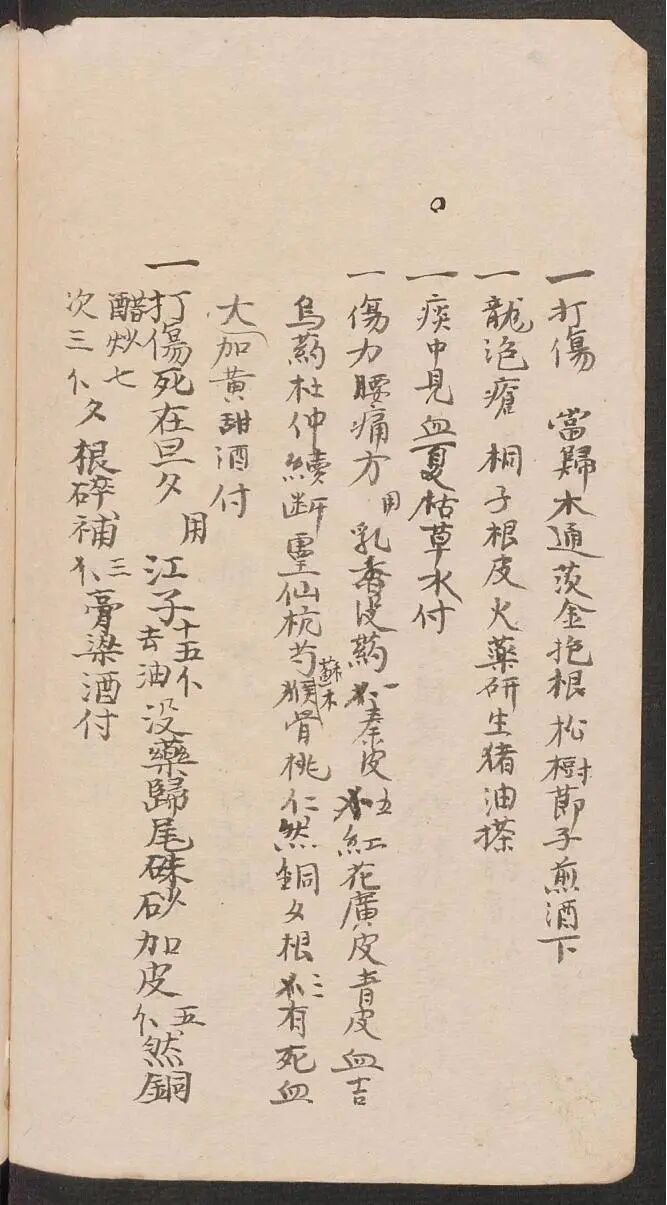 一打傷 當歸木通茨金抱根松樹節子煎酒下
一龍泡瘡 桐子根皮火藥研生猪油搽
一痰中見血夏枯草水付
一傷力腰痛方 用乳香没药 一秦皮五 紅花廣皮青皮血吉
烏药杜仲續断灵仙杭芍蘇木猴骨桃仁然銅 根三 有死血
大加黄甜酒付
一打傷死在旦夕 用江子十五个去油没藥歸尾硃砂加皮五个然銅
醋炒七次三个 根碎補三 膏梁酒付